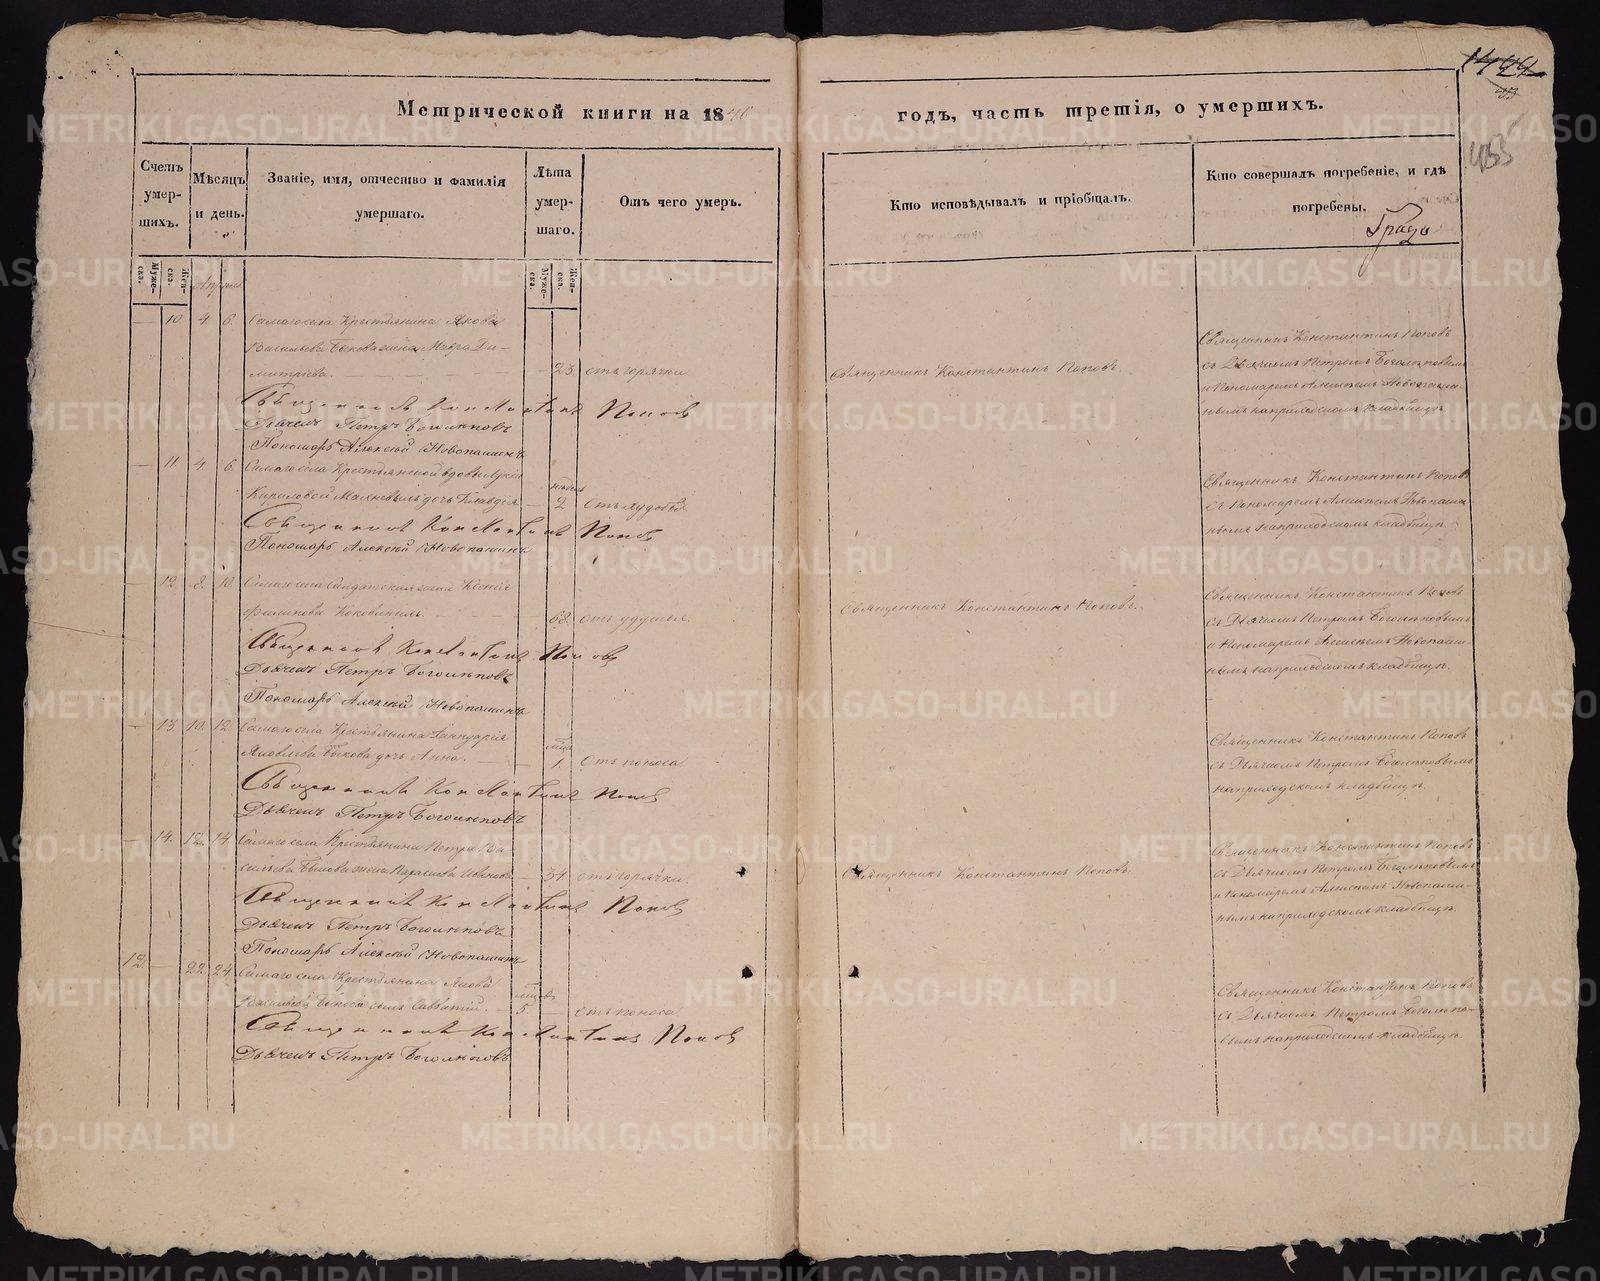 Метрической книги на 1846
годъ, часть третія, о умершихъ.
Счетъ умер-шихъ.
Мѣсяцъ и день.
Званіе, имя, отчество и фамилія умершаго.
Лѣта умер-шаго.
Отъ чего умеръ.
Кто исповѣдывалъ и пріобщалъ.
Кто совершалъ погребеніе, и гдѣ погребены.
Муже-ска.
Жен-ска.
Муже-ска.
Жен-ска.
Апрѣль
10. 4. 6. Самаго села Крестьянина Якова
Васильева Быкова жена Мавра Ди-
митріева. 23. отъ горячки
Священникъ Константинъ Поповъ.
Священникъ Константинъ Поповъ
съ Дьячкомъ Петромъ Боголѣповымъ
и Пономаремъ Алексѣемъ Новопаши-
нымъ на приходскомъ кладбищѣ.
Священникъ Константинъ Поповъ
Дьячекъ Петръ Боголѣповъ
Пономарь Алексѣй Новопашинъ
11. 4. 6. Самаго села Крестьянской вдовы
Кириловой дочь Клавдія 2 отъ худобы
Священникъ Константинъ Поповъ
съ Пономаремъ Алексѣемъ Новопаши-
нымъ на приходскомъ кладбищѣ.
Священникъ Константинъ Поповъ
Пономарь Алексѣй Новопашинъ
12. 8. 10. Самаго села Солдатская жена Ксенія
Филипова 68. отъ удушья
Священникъ Константинъ Поповъ.
Священникъ Константинъ Поповъ
съ Дьячкомъ Петромъ Боголѣповымъ
и Пономаремъ Алексѣемъ Новопаши-
нымъ на приходскомъ кладбищѣ.
Священникъ Константинъ Поповъ
Дьячекъ Петръ Боголѣповъ
Пономарь Алексѣй Новопашинъ
13. 10. 12. Самаго села Крестьянина Іаннуарія
Яковлева Быкова дочь Анна. мѣц. 1. отъ поноса
Священникъ Константинъ Поповъ
съ Дьячкомъ Петромъ Боголѣповымъ
на приходскомъ кладбищѣ.
Священникъ Константинъ Поповъ
Дьячекъ Петръ Боголѣповъ
14. 12. 14. Самаго села Крестьянина Петра Ва-
сильева Быкова жена Параскева Иванова 34. отъ горячки
Священникъ Константинъ Поповъ.
Священникъ Константинъ Поповъ
съ Дьячкомъ Петромъ Боголѣповымъ
и Пономаремъ Алексѣемъ Новопаши-
нымъ на приходскомъ кладбищѣ.
Священникъ Константинъ Поповъ
Дьячекъ Петръ Боголѣповъ
Пономарь Алексѣй Новопашинъ
12. 22. 24. Самаго села Крестьянина Якова
Васильева Быкова сынъ Савватій. 5. отъ поноса
Священникъ Константинъ Поповъ
съ Дьячкомъ Петромъ Боголѣпо-
вымъ на приходскомъ кладбищѣ.
Священникъ Константинъ Поповъ
Дьячекъ Петръ Боголѣповъ
METRIKI.GASO-URAL.RU